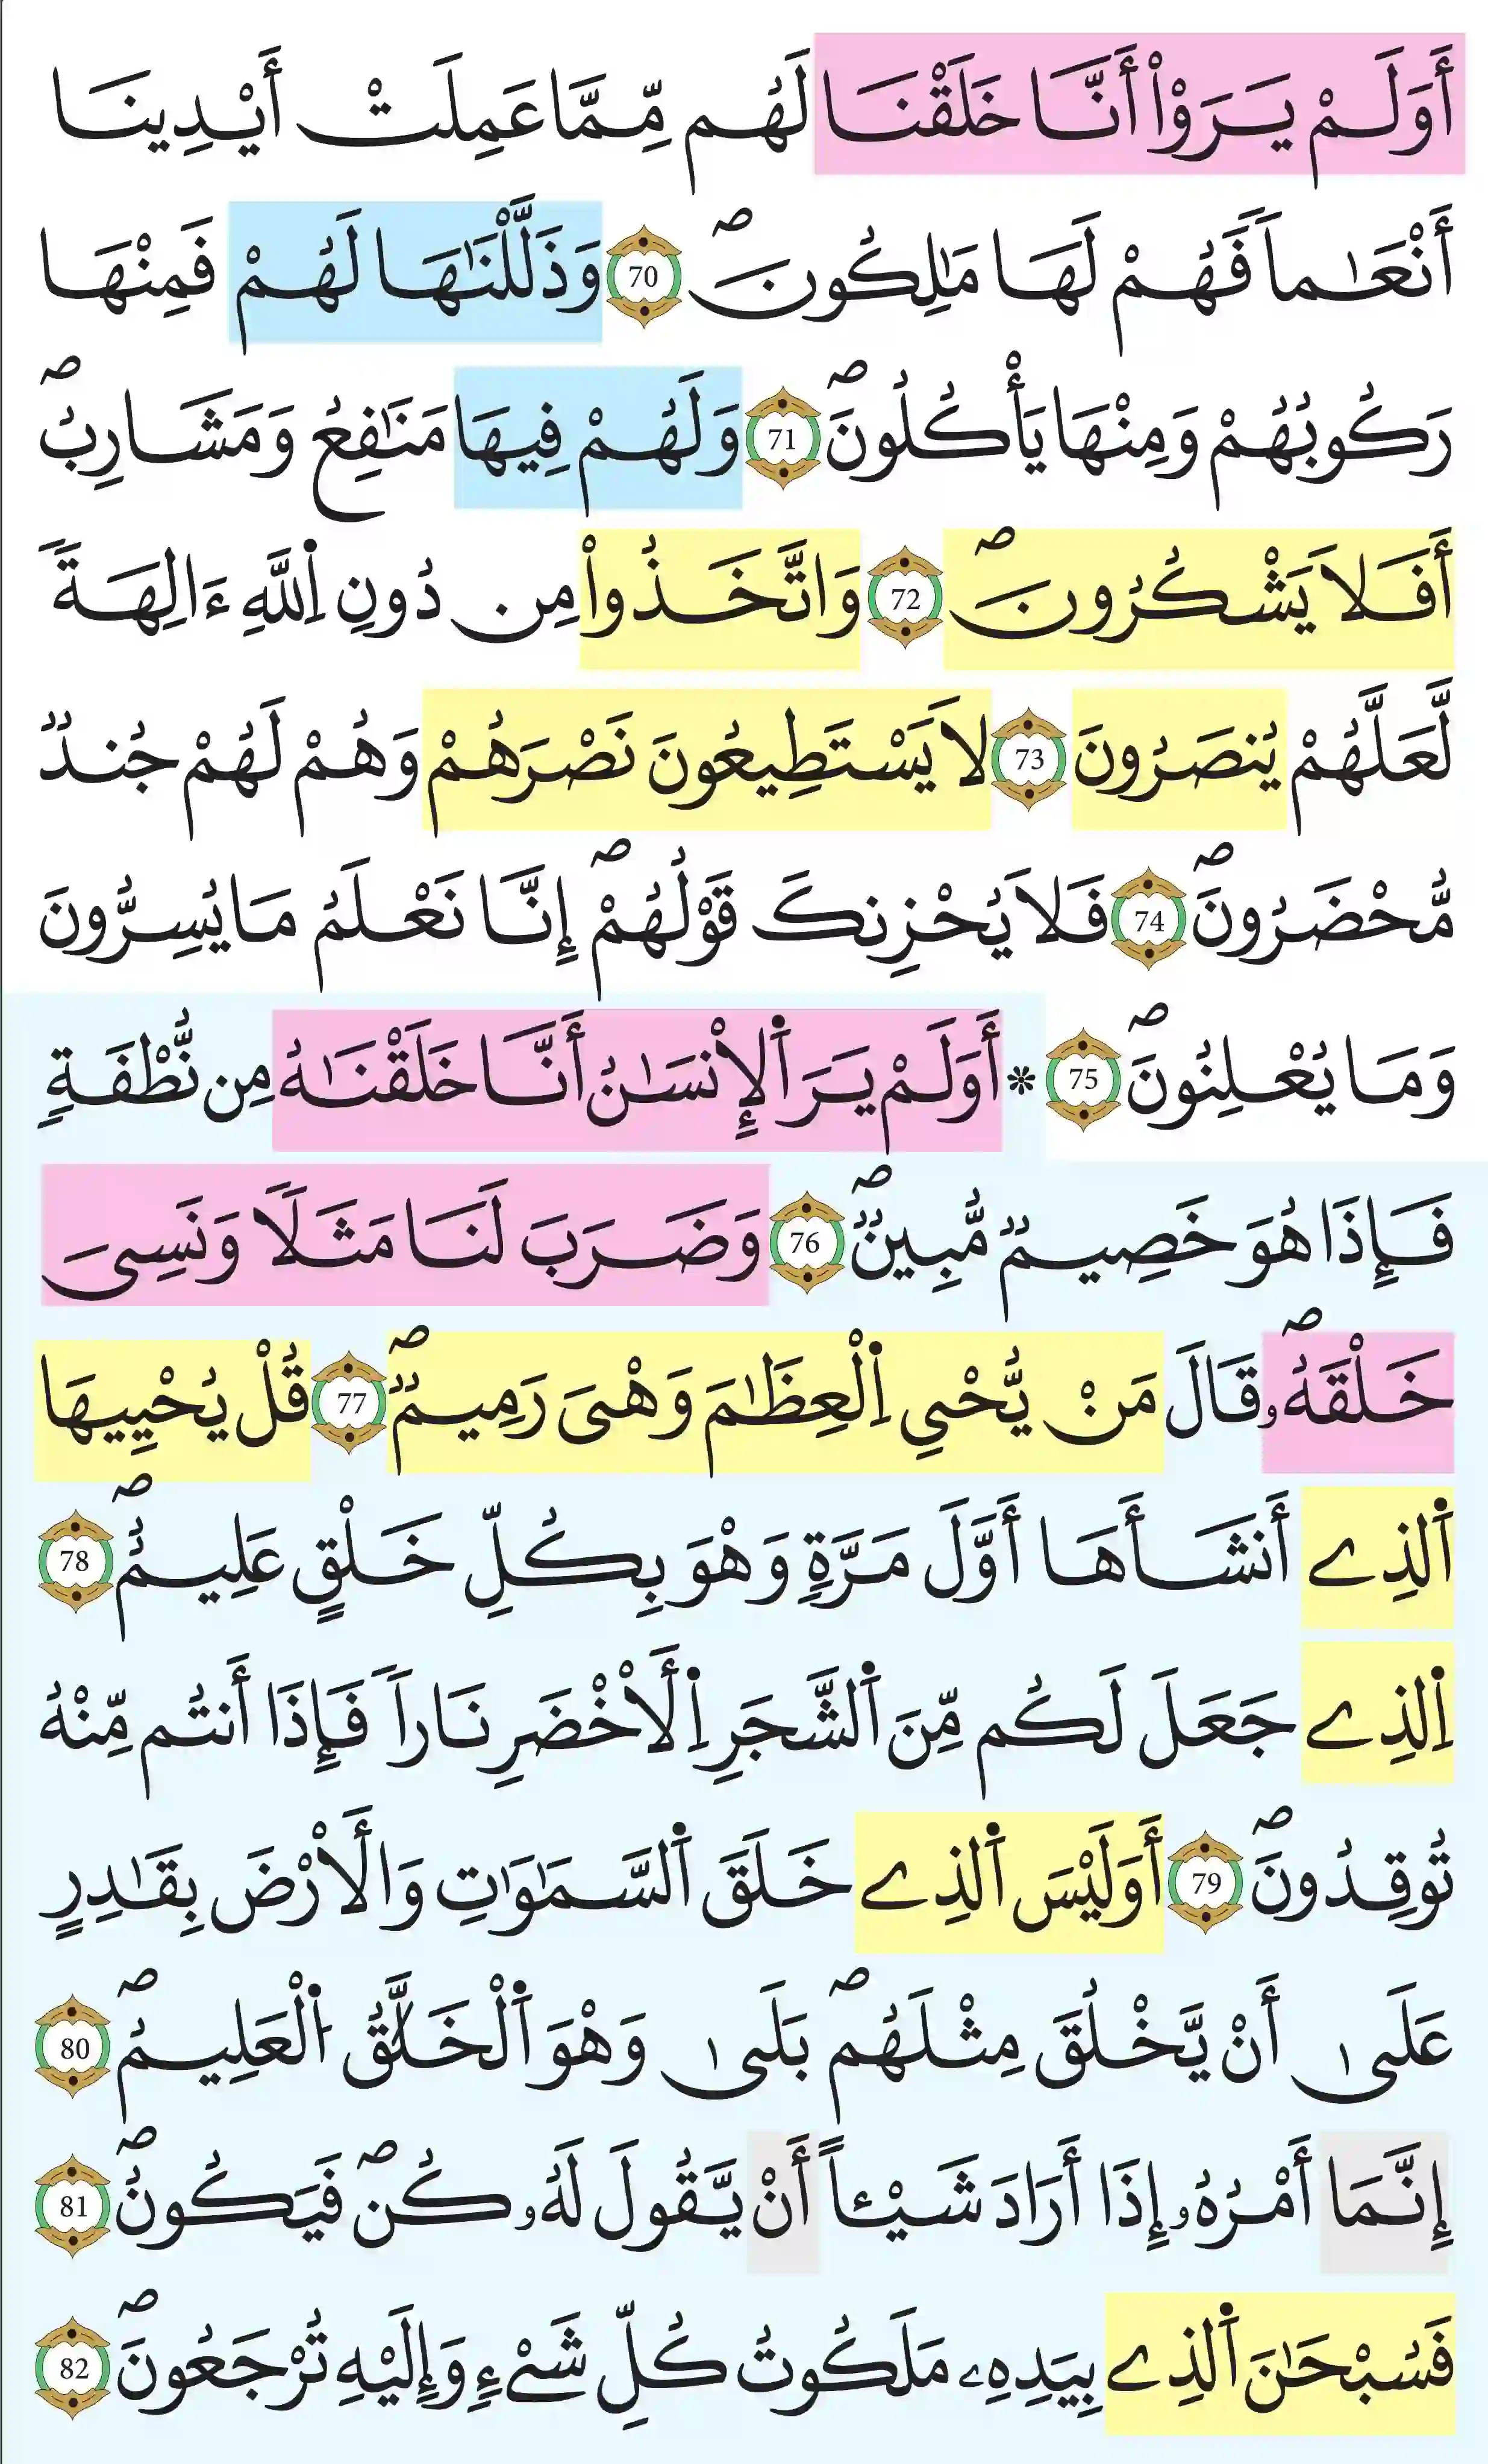 أَوَلَمْ يَرَوْاْ اَنَّا خَلَقْنَا لَهُم مِّمَّا عَمِلَتْ أَيْدِينَا
أَنْعَٰماً فَهُمْ لَهَا مَٰلِكُونَۖ 70 وَذَلَّلْنَٰهَا لَهُمْ فَمِنْهَا
رَكُوبُهُمْ وَمِنْهَا يَأْكُلُونَۖ 71 وَلَهُمْ فِيهَا مَنَٰفِعُ وَمَشَارِبُۖ
أَفَلَا يَشْكُرُونَۖ 72 وَاتَّخَذُواْ مِن دُونِ اِ۬للَّهِ ءَالِهَةً
لَّعَلَّهُمْ يُنصَرُونَ 73 لَا يَسْتَطِيعُونَ نَصْرَهُمْ وَهُمْ لَهُمْ جُندٌ
مُّحْضَرُونَۖ 74 فَلَا يُحْزِنكَ قَوْلُهُمْۖ إِنَّا نَعْلَمُ مَا يُسِرُّونَ
وَمَا يُعْلِنُونَۖ 75 * أَوَلَمْ يَرَ اَ۬لْإِنسَٰنُ أَنَّا خَلَقْنَٰهُ مِن نُّطْفَةٍ
فَإِذَا هُوَ خَصِيمٌ مُّبِينٌۖ 76 وَضَرَبَ لَنَا مَثَلًا وَنَسِىَ
خَلْقَهُۥۖ قَالَ مَنْ يُّحْيِ اِ۬لْعِظَٰمَ وَهْىَ رَمِيمٌۖ 77 قُلْ يُحْيِيهَا
اَ۬لذِے أَنشَأَهَا أَوَّلَ مَرَّةٍ وَهْوَ بِكُلِّ خَلْقٍ عَلِيمٌۖ 78
اِ۬لذِے جَعَلَ لَكُم مِّنَ اَ۬لشَّجَرِ اِ۬لْأَخْضَرِ نَاراً فَإِذَا أَنتُم مِّنْهُ
تُوقِدُونَۖ 79 أَوَلَيْسَ اَ۬لذِے خَلَقَ اَ۬لسَّمَٰوَٰتِ وَالْأَرْضَ بِقَٰدِرٍ
عَلَىٰ أَنْ يَّخْلُقَ مِثْلَهُمۖ بَلَىٰ وَهْوَ اَ۬لْخَلَّٰقُ اُ۬لْعَلِيمُۖ 80
إِنَّمَا أَمْرُهُۥ إِذَا أَرَادَ شَيْـًٔا أَنْ يَّقُولَ لَهُۥ كُنۖ فَيَكُونُۖ 81
فَسُبْحَٰنَ اَ۬لذِے بِيَدِهِۦ مَلَكُوتُ كُلِّ شَےْءٍ وَإِلَيْهِ تُرْجَعُونَۖ 82